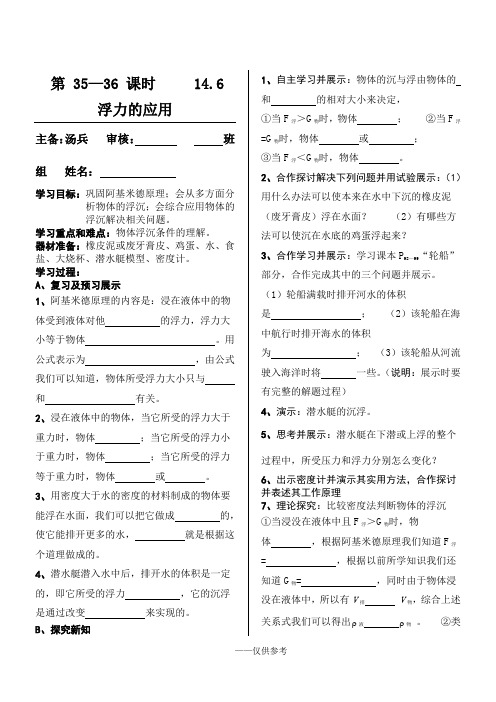 第 35—36 课时 14.6
浮力的应用
主备：汤兵 审核： 班
组 姓名：
学习目标：巩固阿基米德原理；会从多方面分
析物体的浮沉；会综合应用物体的
浮沉解决相关问题。
学习重点和难点：物体浮沉条件的理解。
器材准备：橡皮泥或废牙膏皮、鸡蛋、水、食
盐、大烧杯、潜水艇模型、密度计。
学习过程：
A、复习及预习展示
1、阿基米德原理的内容是：浸在液体中的物
体受到液体对他 的浮力，浮力大
小等于物体 。用
公式表示为 ，由公式
我们可以知道，物体所受浮力大小只与
和 有关。
2、浸在液体中的物体，当它所受的浮力大于
重力时，物体 ；当它所受的浮力小
于重力时，物体 ；当它所受的浮力
等于重力时，物体 或 。
3、用密度大于水的密度的材料制成的物体要
能浮在水面，我们可以把它做成 的，
使它能排开更多的水， 就是根据这
个道理做成的。
4、潜水艇潜入水中后，排开水的体积是一定
的，即它所受的浮力 ，它的沉浮
是通过改变 来实现的。
B、探究新知
1、自主学习并展示：物体的沉与浮由物体的
和 的相对大小来决定，
①当 F浮＞G物时，物体 ； ②当 F浮
=G物时，物体 或 ；
③当 F浮＜G物时，物体 。
2、合作探讨解决下列问题并用试验展示：（1）
用什么办法可以使本来在水中下沉的橡皮泥
（废牙膏皮）浮在水面？ （2）有哪些方
法可以使沉在水底的鸡蛋浮起来？
3、合作学习并展示：学习课本 P “轮船”
部分，合作完成其中的三个问题并展示。
（1）轮船满载时排开河水的体积
是 ； （2）该轮船在海
中航行时排开海水的体积
为 ； （3）该轮船从河流
驶入海洋时将 一些。（说明：展示时要
有完整的解题过程）
4、演示：潜水艇的沉浮。
5、思考并展示：潜水艇在下潜或上浮的整个
过程中，所受压力和浮力分别怎么变化？
6、出示密度计并演示其实用方法，合作探讨
并表述其工作原理
7、理论探究：比较密度法判断物体的浮沉
①当浸没在液体中且 F浮＞G物时，物
体 ，根据阿基米德原理我们知道 F浮
= ，根据以前所学知识我们还
知道 G物= ，同时由于物体浸
没在液体中，所以有 V排 V物，综合上述
关系式我们可以得出ρ液 ρ物 。 ②类
——仅供参考